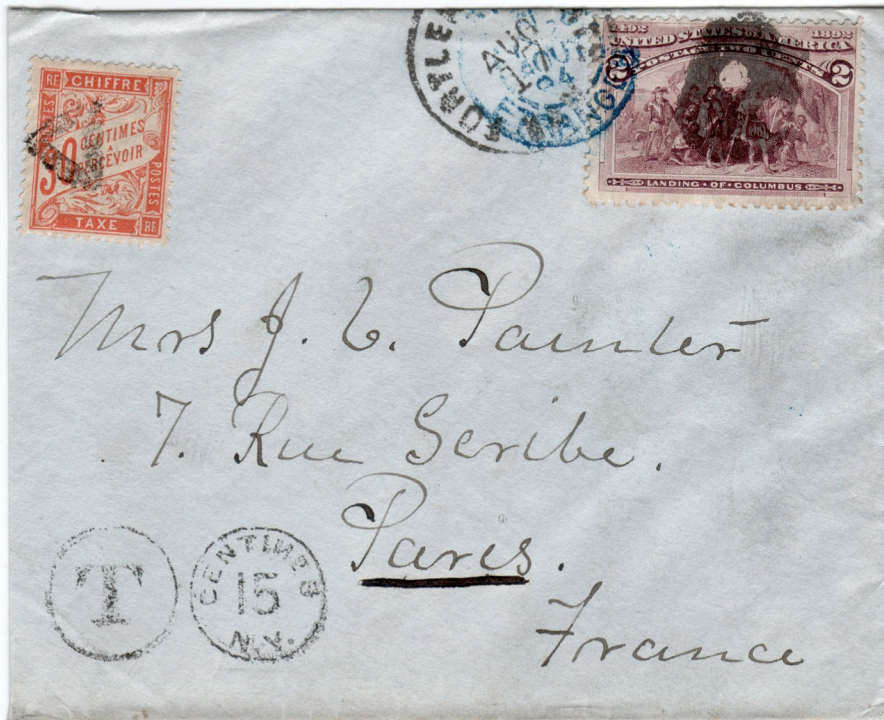 RF CHIFFRE
POSTES
30 CENTIMES
À
PERCEVOIR
POSTES
TAXE RF
AUG
94
1492 1892
UNITED STATES OF AMERICA
POSTAGE TWO CENTS
2 2
LANDING · OF · COLUMBUS
Mrs J. C. Painter
7. Rue Scribe.
Paris.
France
T
CENTIMES
15
N.Y.